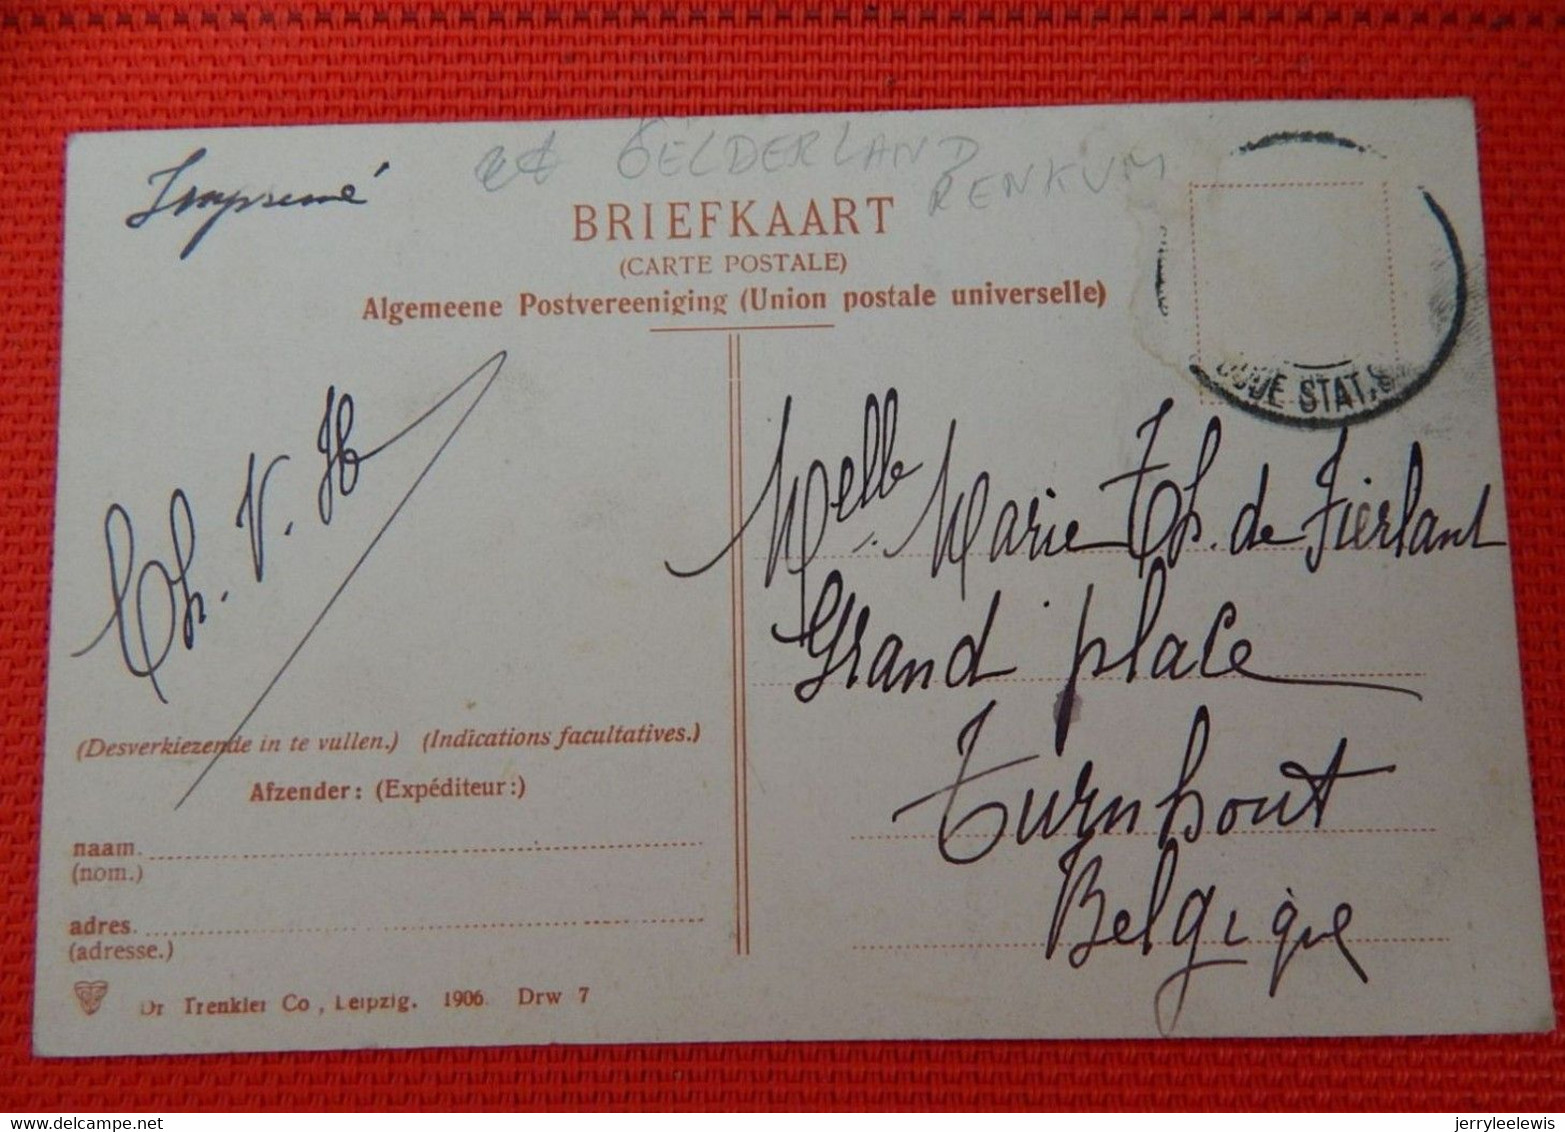 Imprimé
GELDERLAND
RENKUM
BRIEFKAART
(CARTE POSTALE)
Algemeene Postvereeniging (Union postale universelle)
OUDE STAT.S
Th. V. H
Melle Marie Th. de Fierlant
Grand place
Turnhout
Belgique
(Desverkiezende in te vullen.) (Indications facultatives.)
Afzender: (Expéditeur:)
naam.
(nom.)
adres.
(adresse.)
Dr Trenkler Co, Leipzig. 1906. Drw 7
jerryleelewis